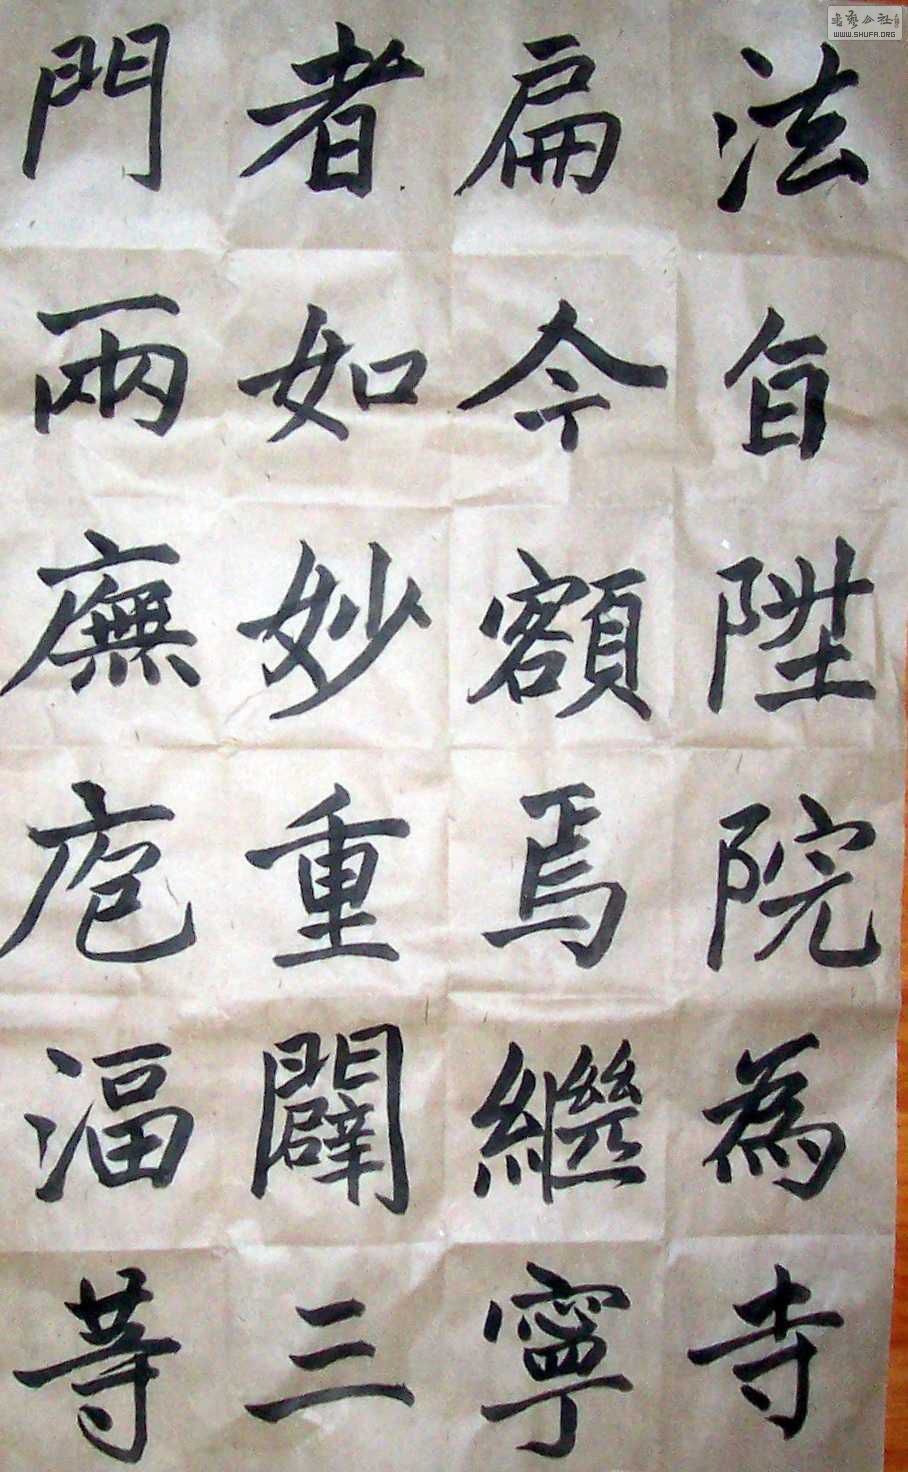 法自陞院為寺
扁今額焉繼寧
者如妙重闢三
門兩廡庖湢等
WWW.SHUFA.ORG